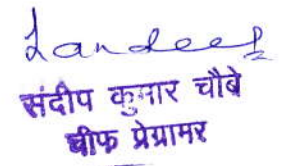 Sandeep
संदीप कुमार चौबे
चीफ प्रेग्रामर